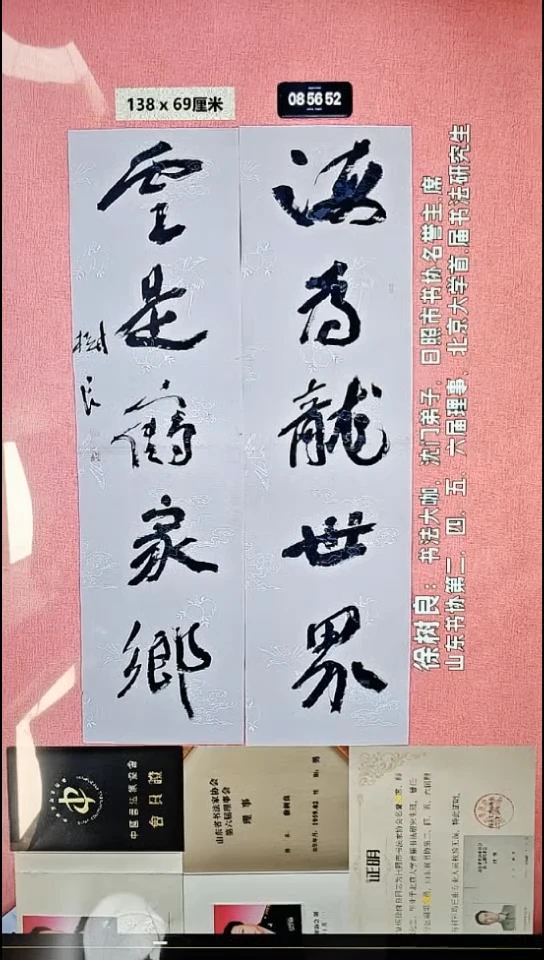 138 x 69厘米
08 56 52
海为龍世界
雲是鶴家鄉
樹良
徐树良：书法大咖，沈门弟子，日照市书协名誉主席
山东书协第二、四、五、六届理事，北京大学首届书法研究生
中國書法家協會
會員證
山东省书法家协会
第六届理事会
理事
证明